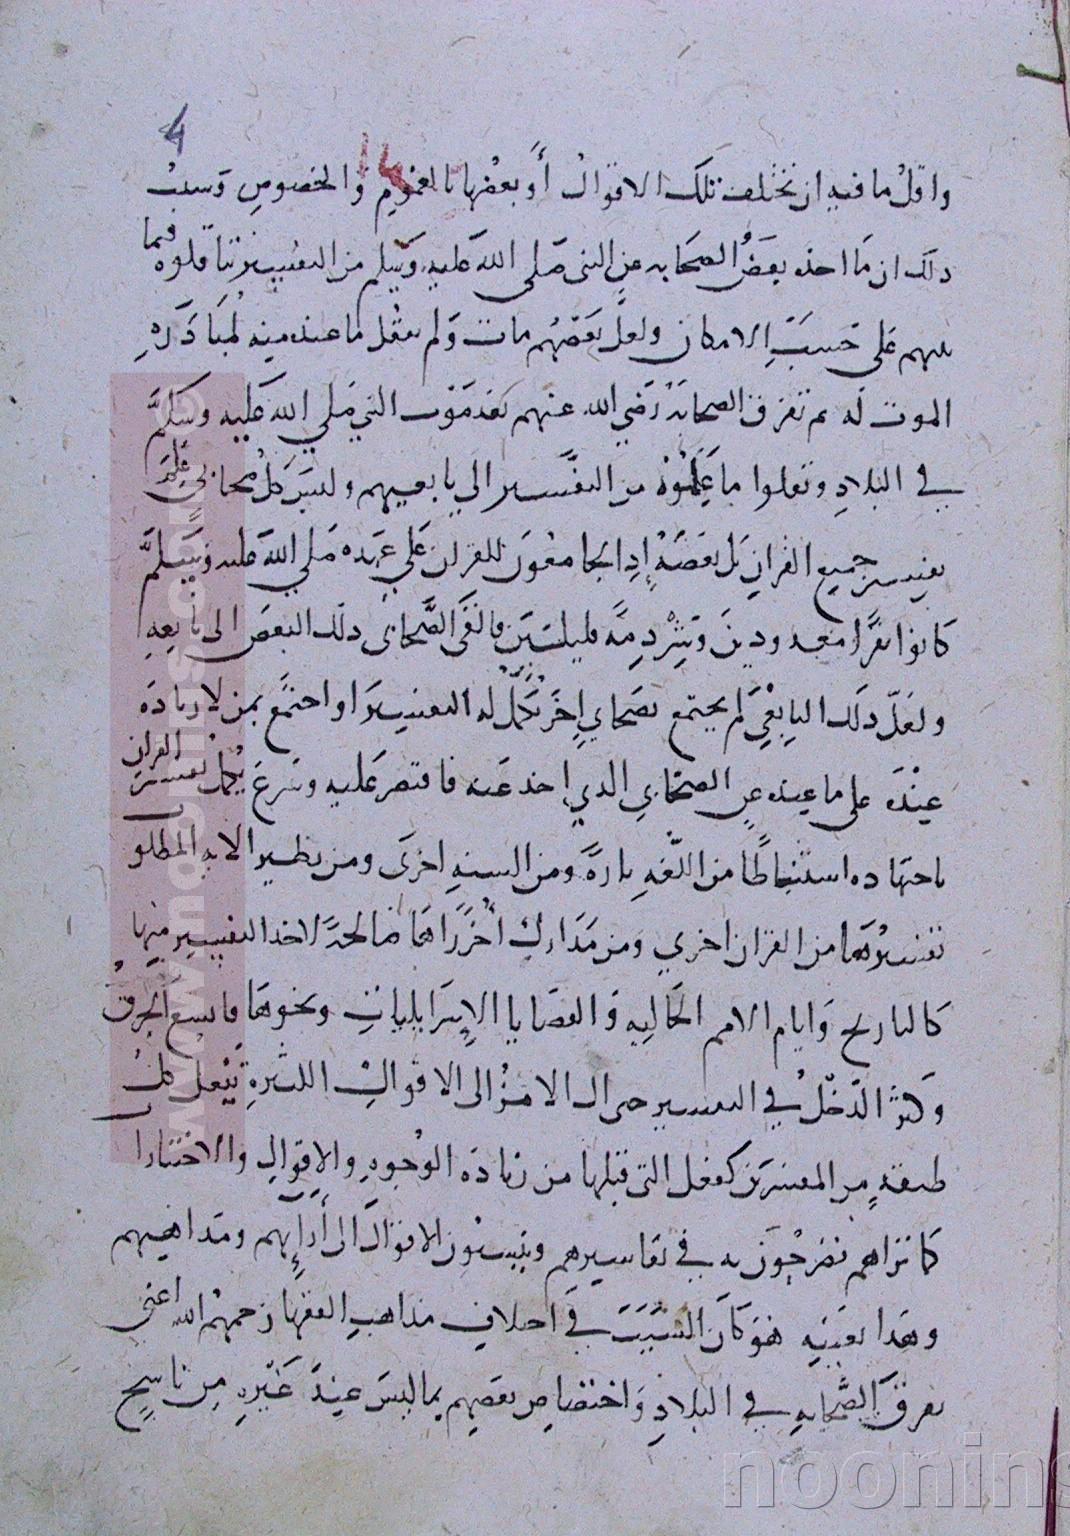 4
14
واقل ما فيه ان تختلف تلك الاقوال أو بعضها بالعموم والخصوص وسبب
ذلك ان ما اخذه بعض الصحابه عن النبي صلى الله عليه وسلم من التفسير تناقلوه فيما
بينهم على حسب الامكان ولعل بعضهم مات ولم ينقل ما عنده منه لمبادرة
الموت له ثم تفرق الصحابة رضي الله عنهم بعد موت النبي صلي الله عليه وسلم
في البلاد ونقلوا ما علموه من التفسير الي تابعيهم وليس كل صحابي علم
تفسير جميع القران بل بعضه إذ الجامعون للقران علي عهده صلي الله عليه وسلم
كانوا نفرا معدودين وشرذمة قليلين فالقى الصحابي ذلك البعض الى تابعه
ولعل ذلك التابعي لم يجتمع بصحابي اخر تكمل له التفسير او اجتمع بمن لا زيادة
عنده على ما عنده عن الصحابي الذي اخذ عنه فاقتصر عليه وشرع يكمل تفسير القران
باجتهاده استنباطا من اللغه تارة ومن السنه اخرى ومن نظير الايه المطلو
تفسيرها من القران اخري ومن مدارك أخر راها صالحة لاخذ التفسير منها
كالتاريخ وايام الامم الخاليه والقضايا الإسرايليات ونحوها فاتسع الخرق
وكثر الدخل في التفسير حتى ال الامر الى الاقوال الكثيرة تنقل كل
طبقة من المفسرين كفعل التي قبلها من زيادة الوجوه والاقوال والاختيارا
كما تراهم يصرحون به في تفاسيرهم وينسبون الاقوال الى أرائهم ومذاهبهم
وهذا بعينه هو كان السبب في اختلاف مذاهب الفقها رحمهم الله اعني
تفرق الصحابه في البلاد واختصاص بعضهم بما ليس عند غيره من ناسخ
www.noorlib.com
noorins